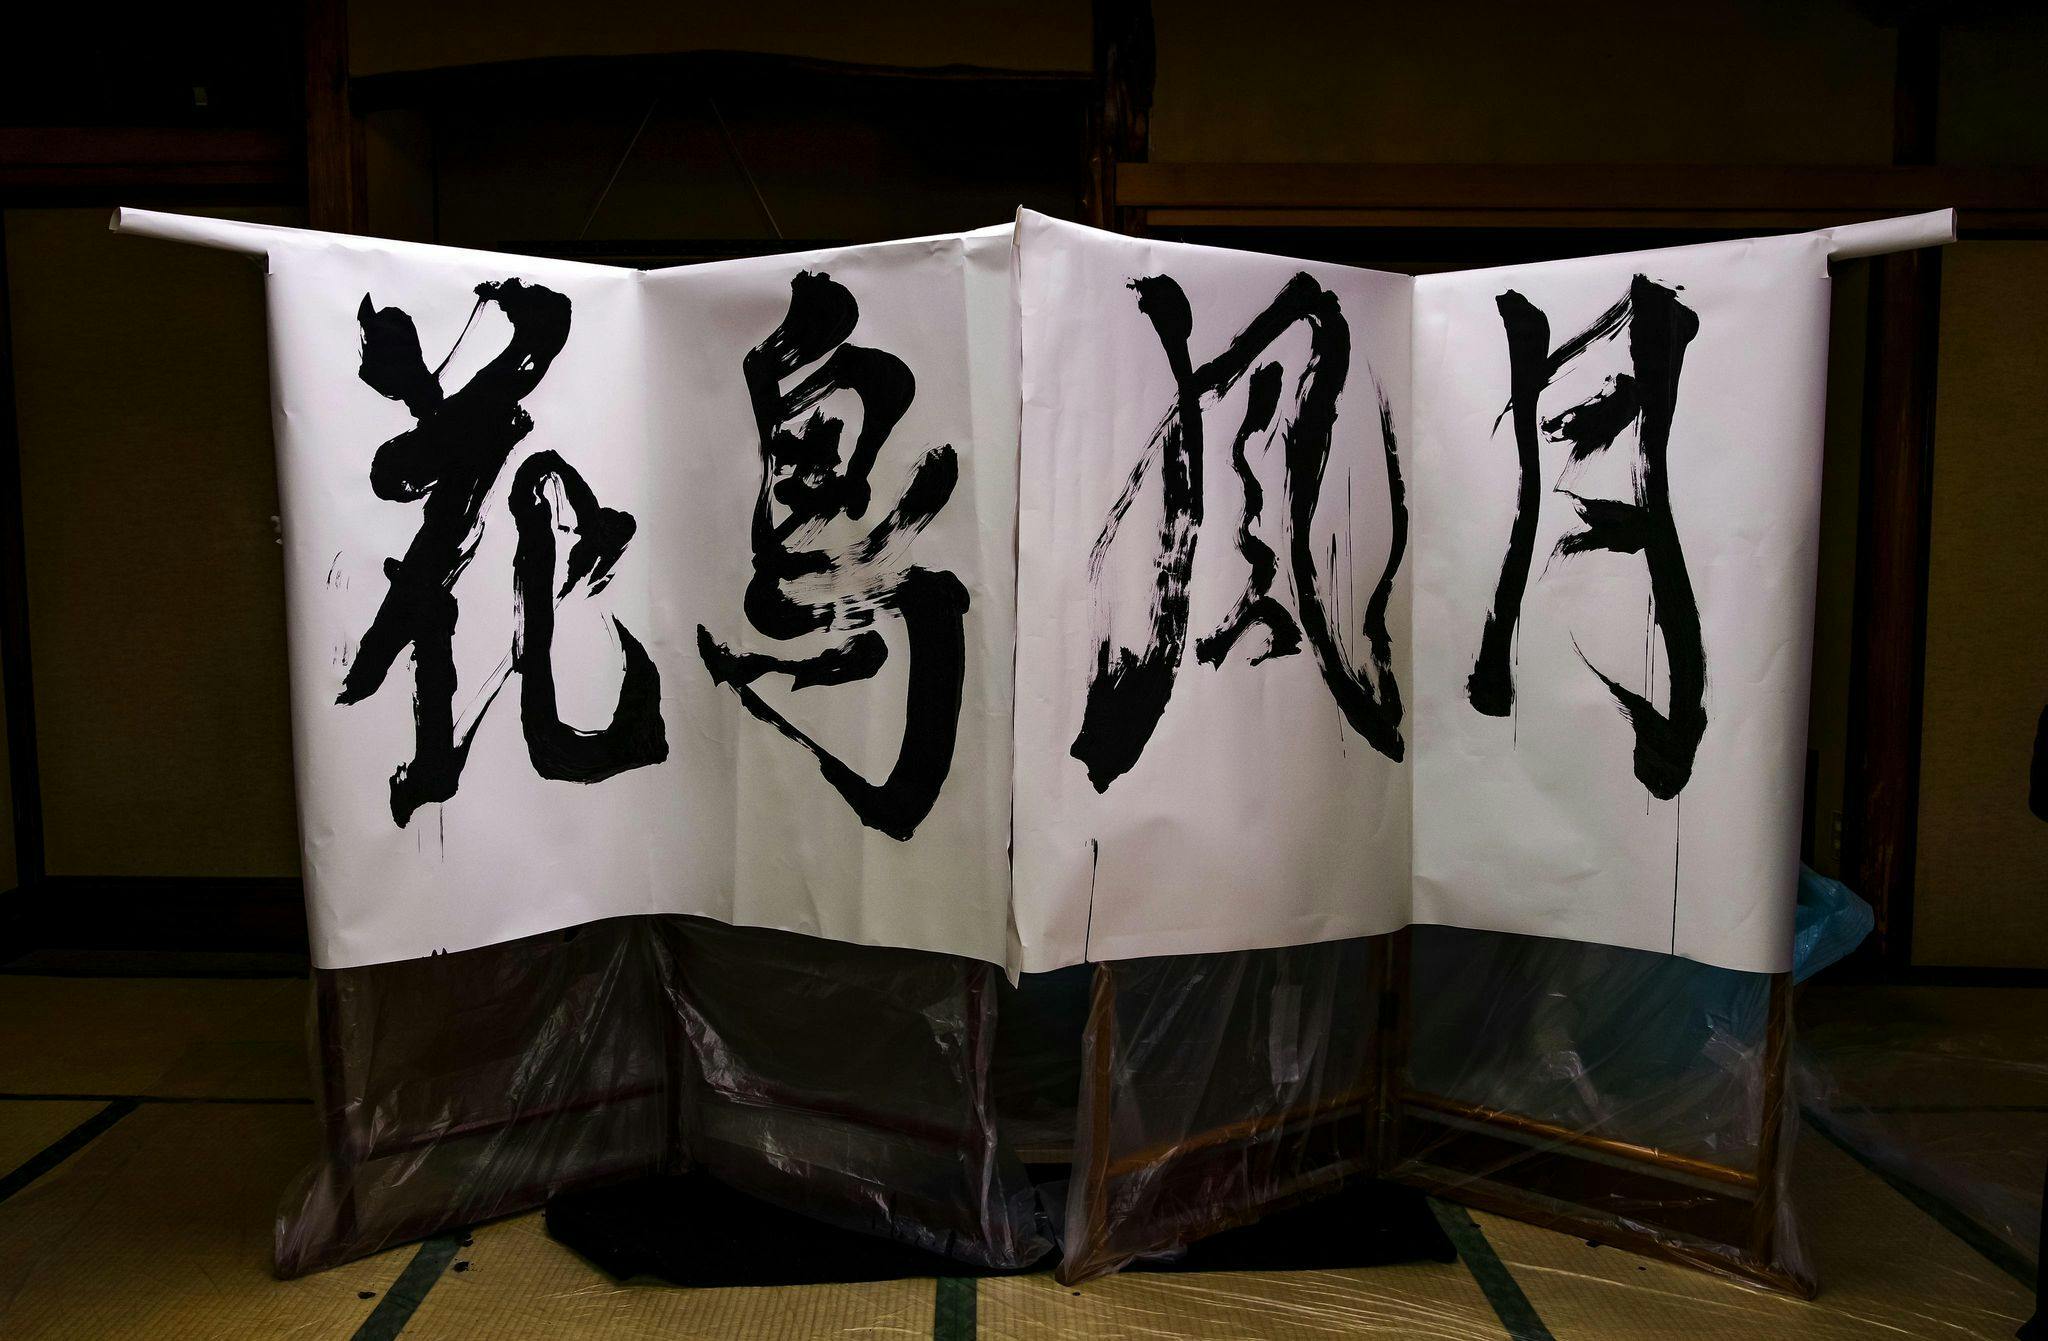 花鳥風月